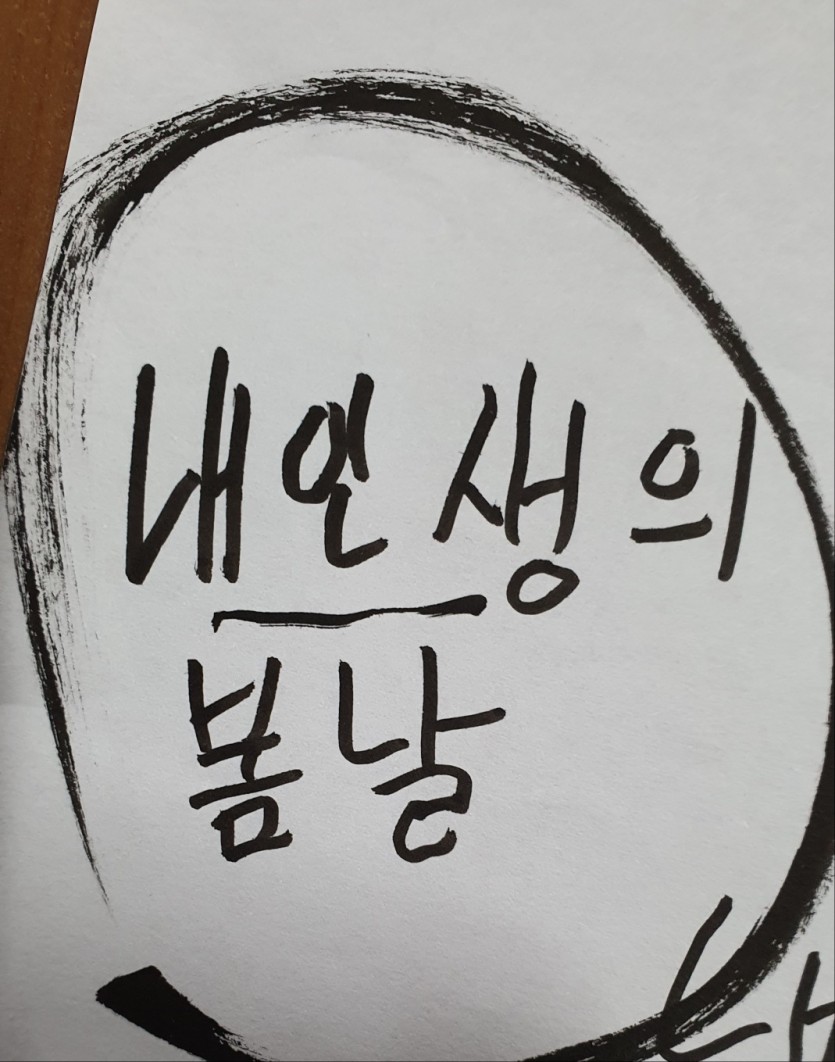 내 인생의
봄날